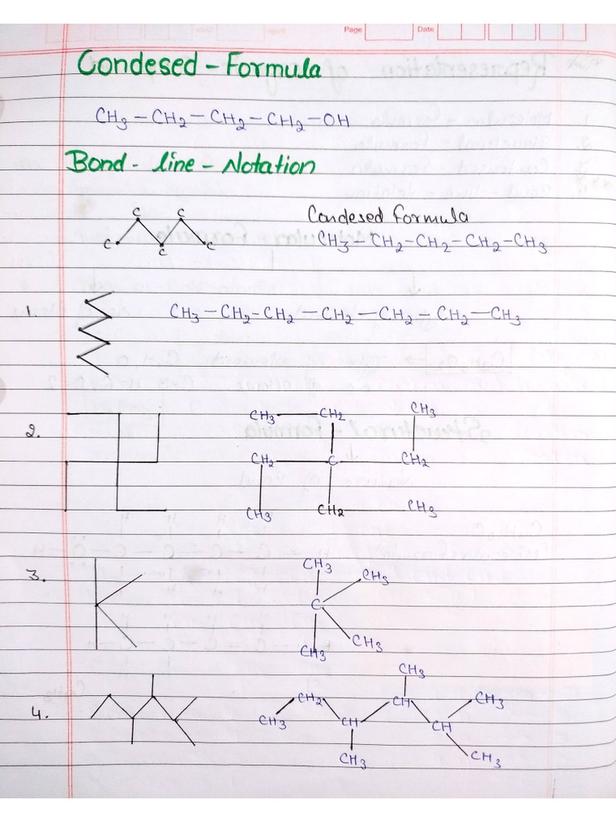 Page Date
Condesed - Formula
CH3 - CH2 - CH2 - CH2 - OH
Bond - line - Notation
C C
C C C
Condesed formula
CH3 - CH2 - CH2 - CH2 - CH3
1. CH3 - CH2 - CH2 - CH2 - CH2 - CH2 - CH3
2. CH3 CH2 CH3
CH2 C CH2
CH3 CH2 CH3
3. CH3
CH3
C
CH3
CH3
4. CH3
CH2 CH CH3
CH3 CH CH
CH3 CH3